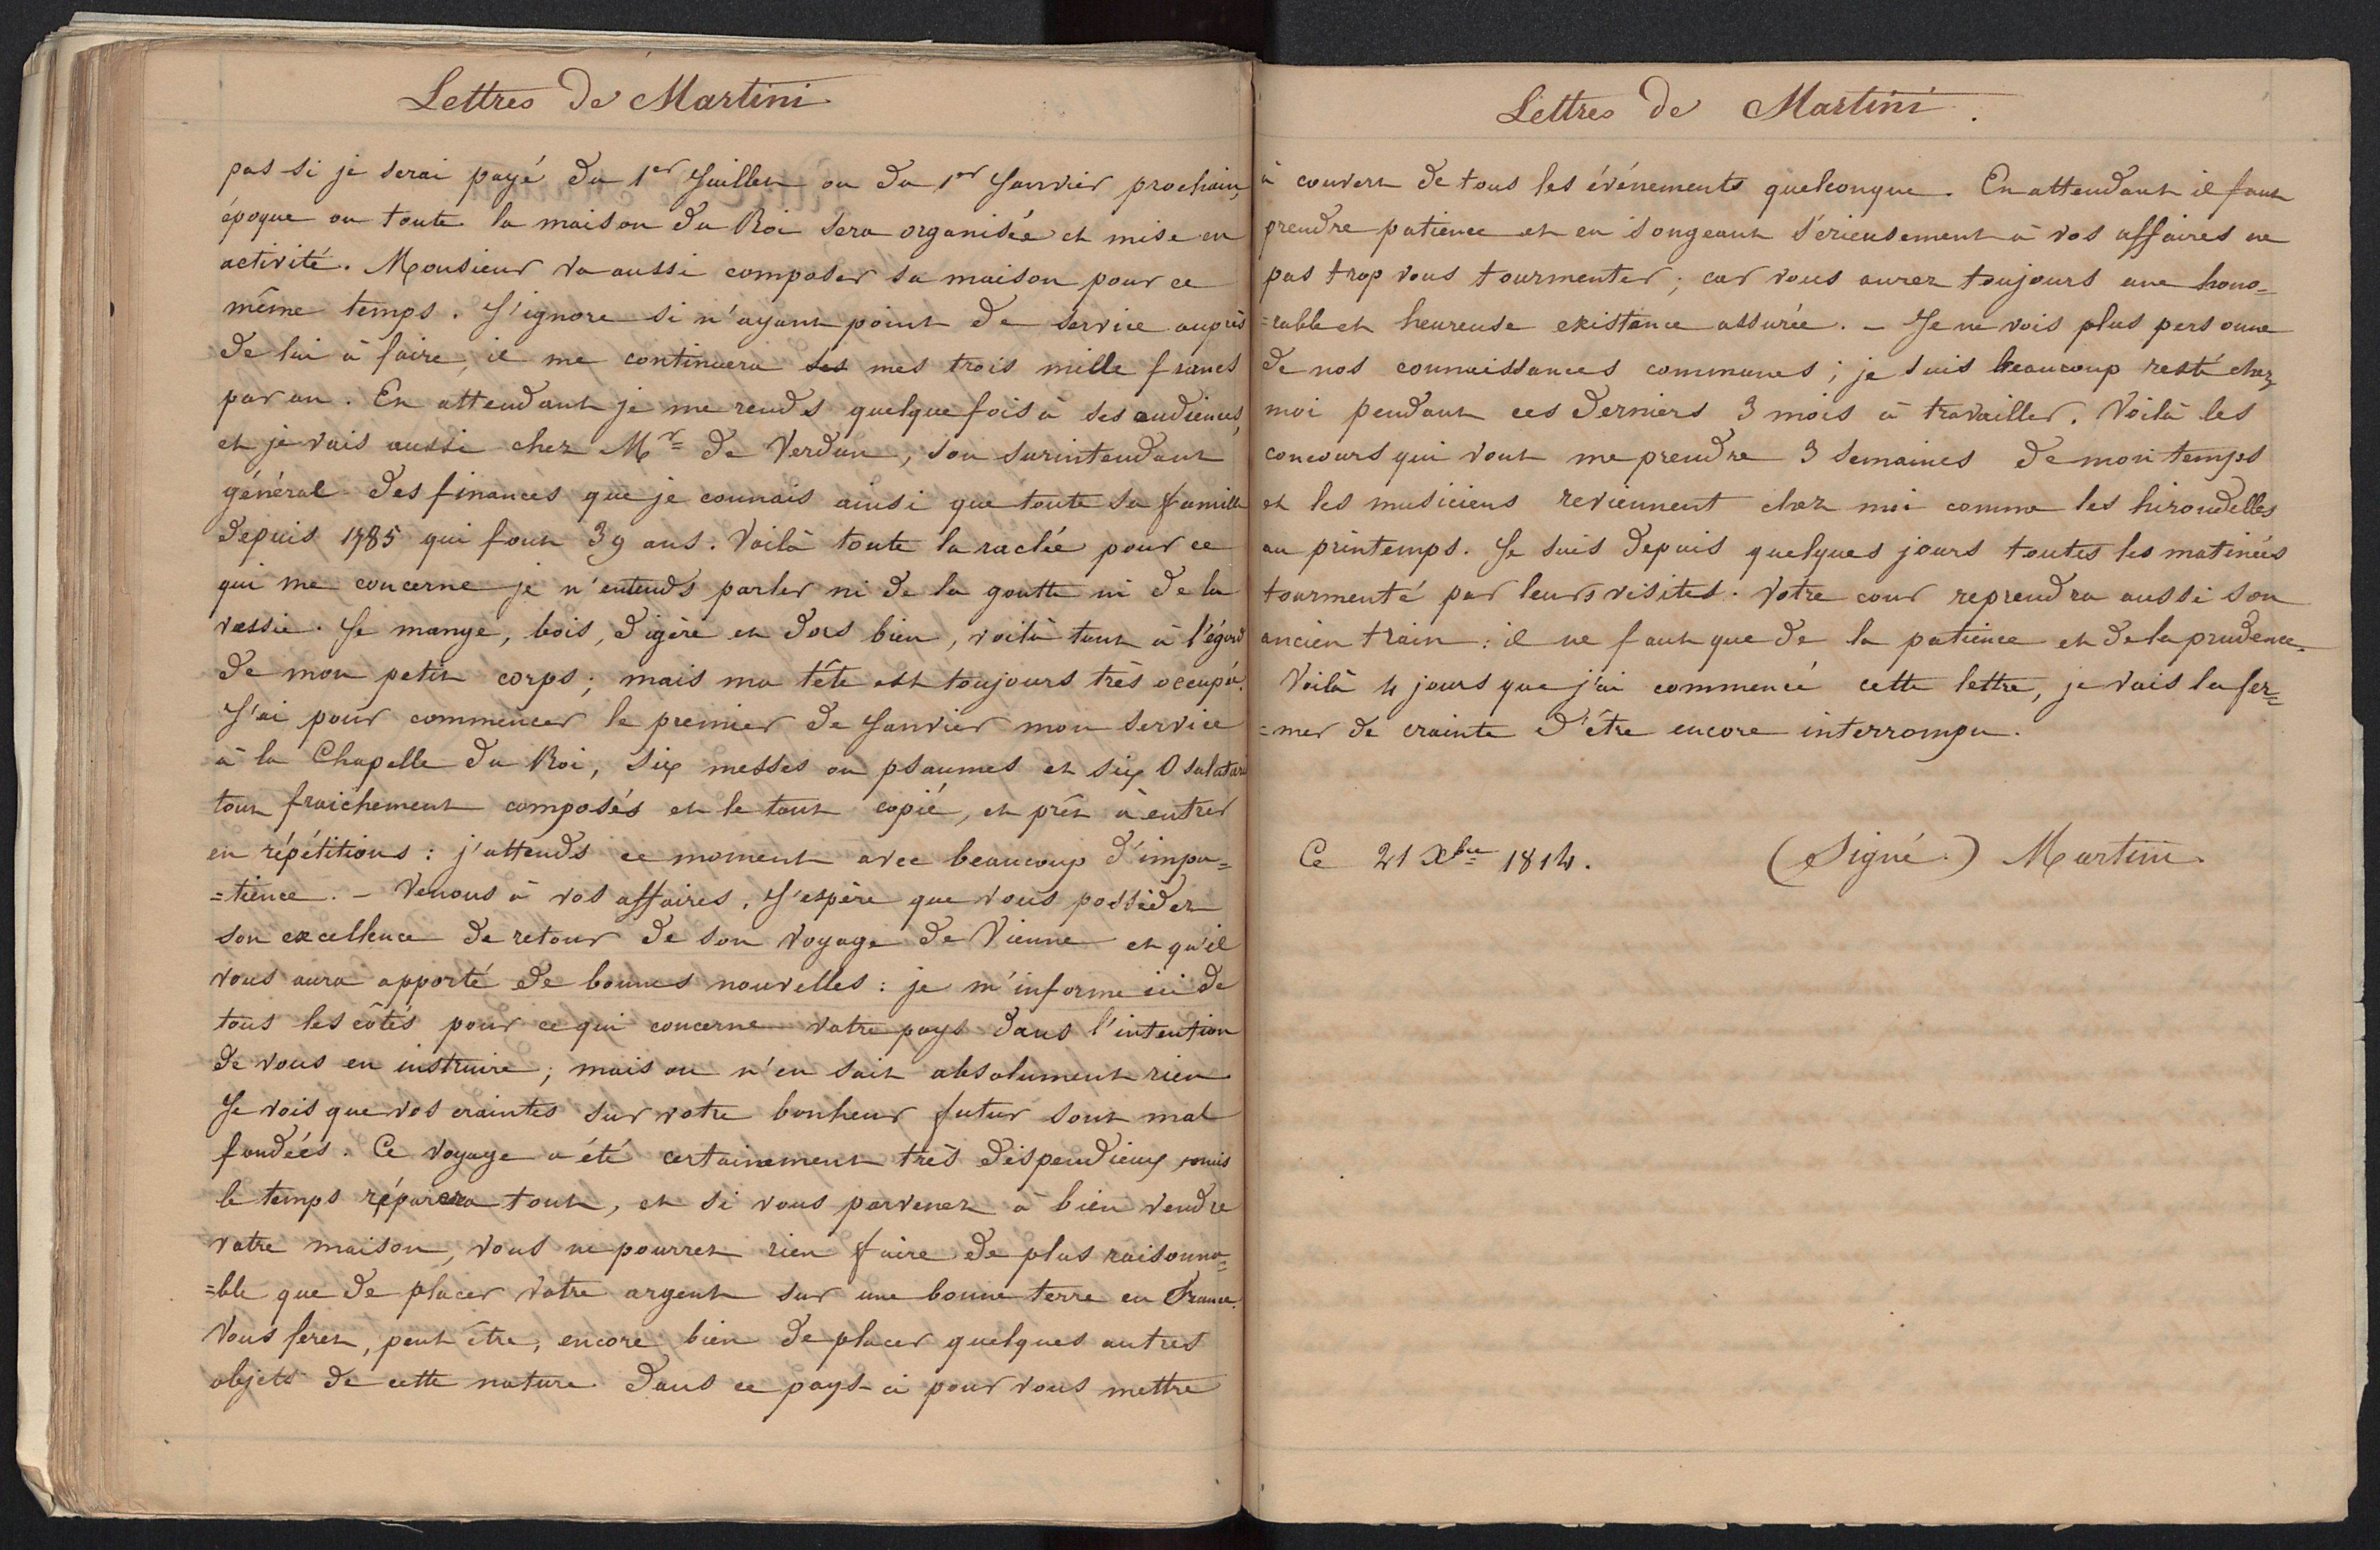 Lettres de Martini
pas si je serai payé du 1er Juillet ou du 1er Janvier prochain,
époque ou toute la maison du Roi sera organisée et mise en
activité. Monsieur va aussi composer sa maison pour ce
même temps. J'ignore si n'ayant point de service auprès
de lui à faire, il me continuera ses mes trois mille francs
par an. En attendant je me rends quelque fois à ses audiences,
et je vais aussi chez Mr de Verdun, son surintendant
général des finances que je connais ainsi que toute sa famille
depuis 1785 qui font 39 ans. Voilà toute la raclée pour ce
qui me concerne je n'entends parler ni de la goutte ni de la
vessie. Je mange, bois, digère et dors bien, voilà tout à l'égard
de mon petit corps; mais ma tête est toujours très occupée.
J'ai pour commencer le premier de Janvier mon service
à la Chapelle du Roi, six messes ou psaumes et six O salutaris
tout fraichement composés et le tout copié, et prêt à entrer
en répétitions: j'attends ce moment avec beaucoup d'impa=
=tience. - Venons à vos affaires. J'espère que vous possédez
son excellence de retour de son voyage de Vienne et qu'il
vous aura apporté de bonnes nouvelles: je m'informe ici de
tous les côtés pour ce qui concerne votre pays dans l'intention
de vous en instruire; mais on n'en sait absolument rien
Je vois que vos craintes sur votre bonheur futur sont mal
fondées. Ce voyage a été certainement très dispendieux, mais
le temps réparera tout, et si vous parvenez à bien vendre
votre maison, vous ne pourrez rien faire de plus raisonna=
=ble que de placer votre argent sur une bonne terre en France.
Vous ferez, peut être, encore bien de placer quelques autres
objets de cette nature dans ce pays-ci pour vous mettre
Lettres de Martini.
à couvert de tous les événements quelconque. En attendant il faut
prendre patience et en songeant sérieusement à vos affaires ne
pas trop vous tourmenter; car vous aurez toujours une hono=
=rable et heureuse existence assurée. - Je ne vois plus personne
de nos connaissances communes; je suis beaucoup resté chez
moi pendant ces derniers 3 mois à travailler. Voilà les
concours qui vont me prendre 3 semaines de mon temps
et les musiciens reviennent chez moi comme les hirondelles
au printemps. Je suis depuis quelques jours toutes les matinées
tourmenté par leurs visites. Votre cour reprendra aussi son
ancien train: il ne faut que de la patience et de la prudence.
Voilà 4 jours que j'ai commencé cette lettre, je vais la fer=
=mer de crainte d'être encore interrompu.
Ce 21 Xbre 1814. (Signé) Martini.